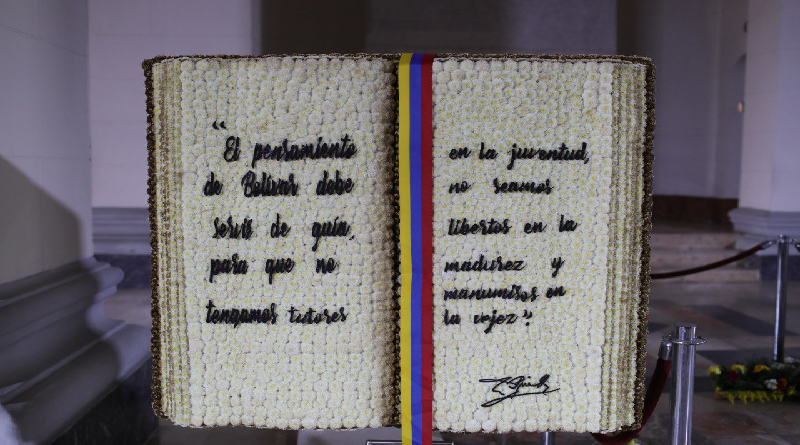 “El pensamiento
de Bolívar debe
servir de guía,
para que no
tengamos tutores
en la juventud,
no seamos
libertos en la
madurez y
manumisos en
la vejez”.